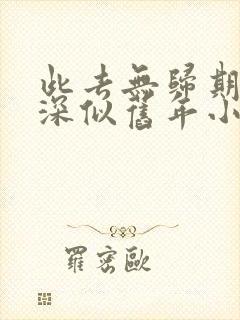 此去無歸期
深似舊年小
羅密歐